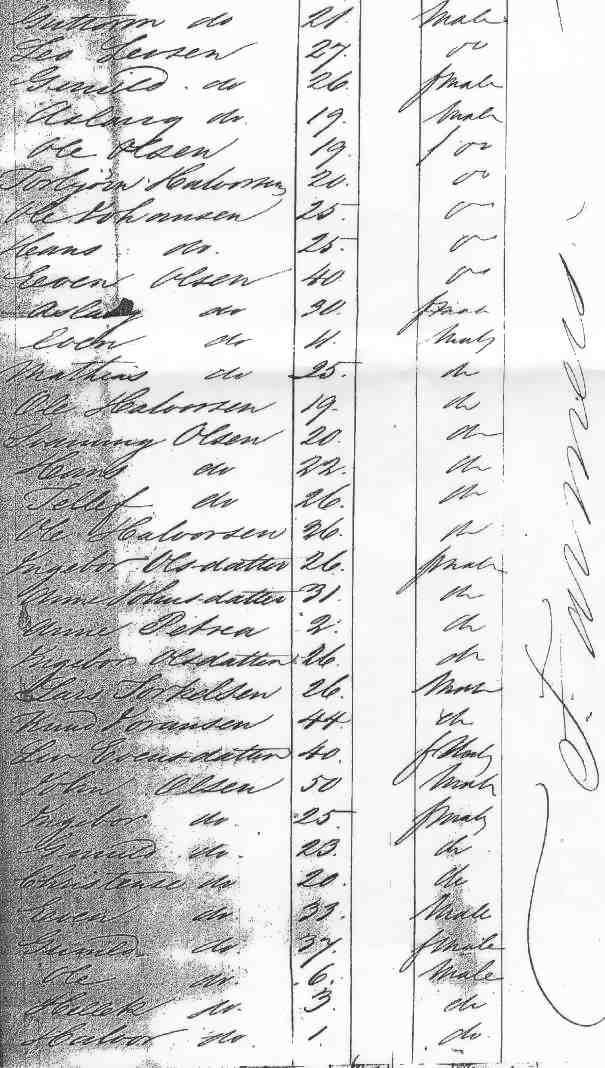 Guttorm do 21 Male
Leo Leosen 27. do
Gunild do 26 female
Aslaug do 19. Male
Ole Olsen 19. do
Torbjörn Halvorsen 20. do
Ole Johansen 25. do
Hans do. 25 do
Even Olsen 40 do
Aslaug do 30. female
Even do 11. Male
Mathias do 25. do
Ole Halvorsen 19. do
Olsen 20. do
Hans do 22. do
Tellef do 26. do
Ole Halvorsen 36. do
Ingebor Olsdatter 26. female
31 do
Anne Petrea 2. do
Ingebor Olsdatter 26. do
Lars Torkelsen 26. Male
Knud Joransen 44. do
Liv Evensdatter 40. female
John Olsen 50 Male
Ingebor do. 25 female
Gunild do. 23. do
Christense do 20. do
Even do 33. Male
Gunild do. 37. female
Ole do 6. Male
do. 3. do
Halvor do. 1. do.
Farmers.